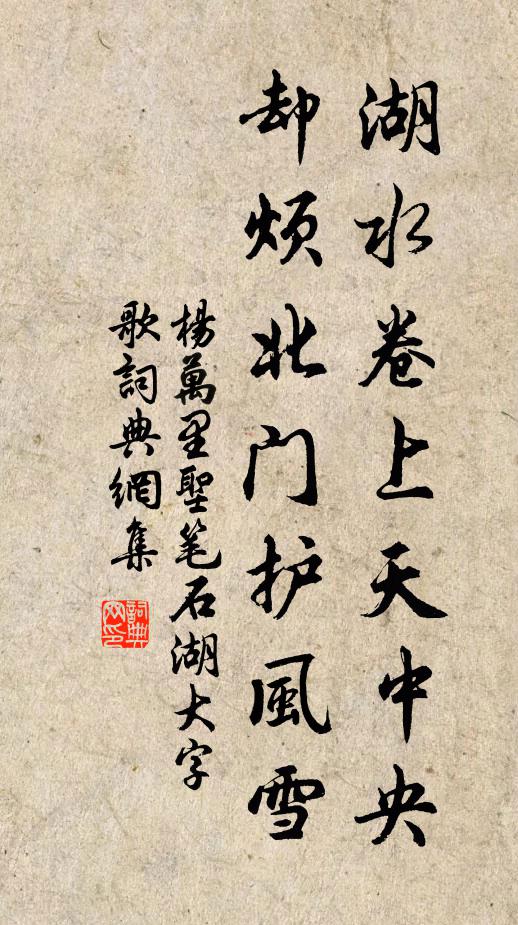 湖水卷上天中央
却烦北门护風雪
楊萬里聖笔石湖大字
歌詞典網集
詞典
网印